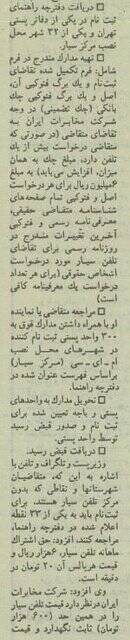 □ دریافت دفترچه راهنمای
ثبت نام در یکی از دفاتر پستی
تهران و یکی از ۳۲ شهر محل
نصب مرکز سیار.
□ تهیه مدارک مندرج در فرم
شامل: فرم تکمیل شده تقاضای
ثبت‌نام و یک برگ فتوکپی آن،
اصل و یک برگ فتوکپی چک
بانکی (چک تضمینی) در وجه
شرکت مخابرات ایران به
تقاضای متقاضی (در صورتی که
متقاضی درخواست بیش از یک
تلفن دارد، مبلغ چک به همان
میزان، افزایش می‌یابد) به مبلغ
۶میلیون ریال برای هر درخواست
اصل و فتوکپی تمام صفحه‌های
شناسنامه متقاضی حقیقی،
معرفی‌نامه رسمی و فتوکپی
آخرین تغییرات مندرج در
روزنامه رسمی برای تقاضای
تلفن سیار مورد درخواست
اشخاص حقوقی (برای هر تعداد
درخواست یک معرفینامه کافی
است)
□ مراجعه متقاضی یا نماینده
او با همراه داشتن مدارک فوق به
۳۰۰ واحد پستی ثبت نام کننده
در شهرهای محل نصب
ام.ای.سی (مرکز سیار)
براساس فهرست عنوان شده در
دفترچه راهنما.
□ تحویل مدارک به واحدهای
پستی و باجه تعیین شده برای
ثبت نام و صدور قبض رسید
توسط واحد پستی.
□ دریافت قبض رسید.
وزیر پست و تلگراف و تلفن با
اشاره به این که، متقاضیان
شهرستانها و نقاطی که بدون
مرکز تلفن سیار هستند برای
ثبت‌نام باید به یکی از ۳۳ نقطه
اعلام شده در دفترچه راهنما،
مراجعه کنند، افزود: حق اشتراک
ماهانه تلفن سیار، ۶هزار ریال و
قیمت هر پالس آن ۲۰ تومان در
دقیقه است.
وی افزود: شرکت مخابرات
ایران در نظر دارد قیمت تلفن سیار
را در همین حد (۶۰۰ هزار
تومان) ثابت نگهدارد و قیمت